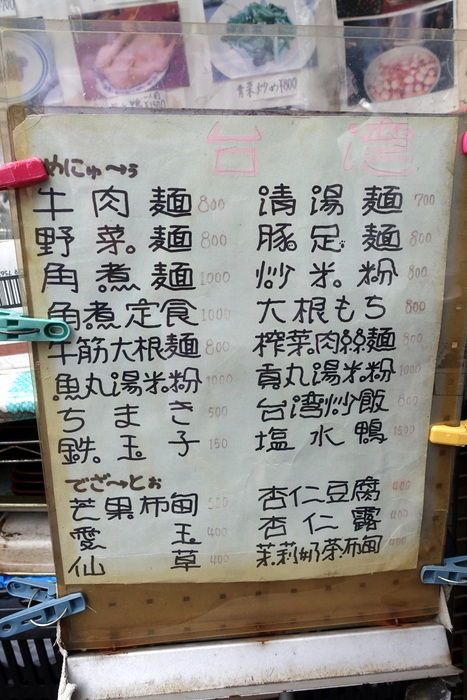 青菜炒め¥800
台湾
めにゅ〜ぅ
牛肉麵 800 清湯麵 700
野菜麵 800 豚足麵 800
角煮麵 1000 炒米粉 800
角煮定食 1000 大根もち 800
牛筋大根麵 800 榨菜肉絲麵 800
魚丸湯米粉 1000 貢丸湯米粉 1000
ちまき 500 台湾炒飯 800
鉄玉子 150 塩水鴨 1500
でざ〜とぉ
芒果布甸 520 杏仁豆腐 400
愛玉 400 杏仁露 400
仙草 400 茉莉奶茶布甸 400